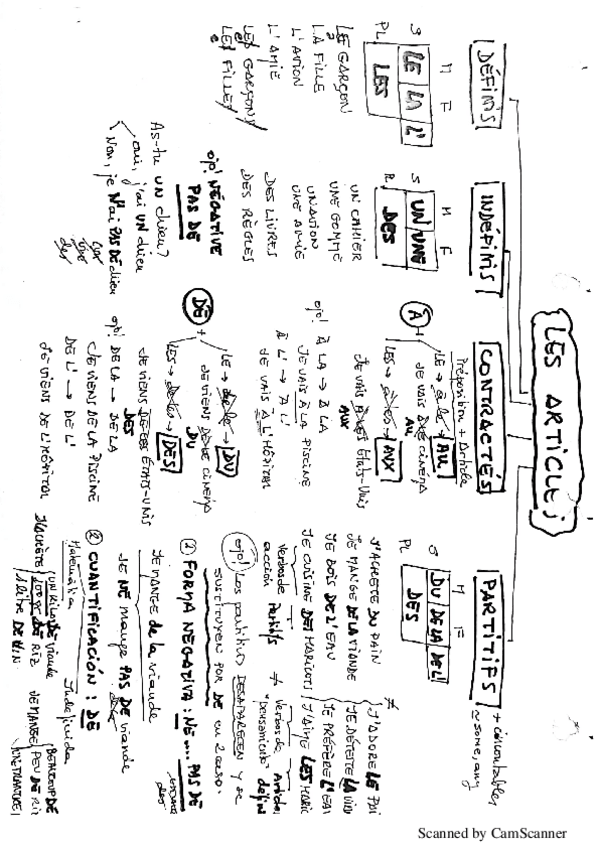 LES ARTICLES
DÉFINIS
M F
S LE LA L'
PL LES
LE GARÇON
LA FILLE
L'AVION
L'AMIE
LES GARÇONS
LES FILLES
INDÉFINIS
M F
S UN UNE
PL DES
UN CAHIER
UNE GOMME
UN AVION
UNE AMIE
DES LIVRES
DES RÈGLES
ojo! NÉGATIVE
PAS DE
As-tu un chien?
oui, j'ai UN chien
Non, je N'ai PAS DE chien
CONTRACTÉS
Préposition + Article
À +
LE → à le → AU
Je vais à le cinéma
AU
LES → à les → AUX
Je vais à les États-Unis
AUX
ojo! À LA → À LA
Je vais à la piscine
À L' → À L'
Je vais à l'hôpital
DE +
LE → de le → DU
Je viens de le cinéma
DU
LES → de les → DES
Je viens de les États-Unis
DES
ojo! DE LA → DE LA
Je viens de la piscine
DE L' → DE L'
Je viens de l'hôpital
PARTITIFS
+ incontables
≈ some, any
M F
S DU DE LA DE L'
PL DES
J'achète DU pain ≠ J'adore LE pai
Je mange DE LA viande Je déteste LA vian
Je bois DE L'eau Je préfère L'eau
Je cuisine DES haricots J'aime LES haric
Verbos de acción Partitifs ≠ Verbos de "pensamiento" Articles défini
ojo! Los partitivos DESAPARECEN y se
sustituyen por DE en 2 casos.
① FORMA NEGATIVA: NE... PAS DE
Je mange de la viande
Je NE mange PAS DE viande
② CUANTIFICACIÓN: DE
Matemática Indefinida
J'achète UN KILO DE viande
200gr DE riz
1 litre DE vin
Je mange BEAUCOUP DE
PEU DE riz
Scanned by CamScanner